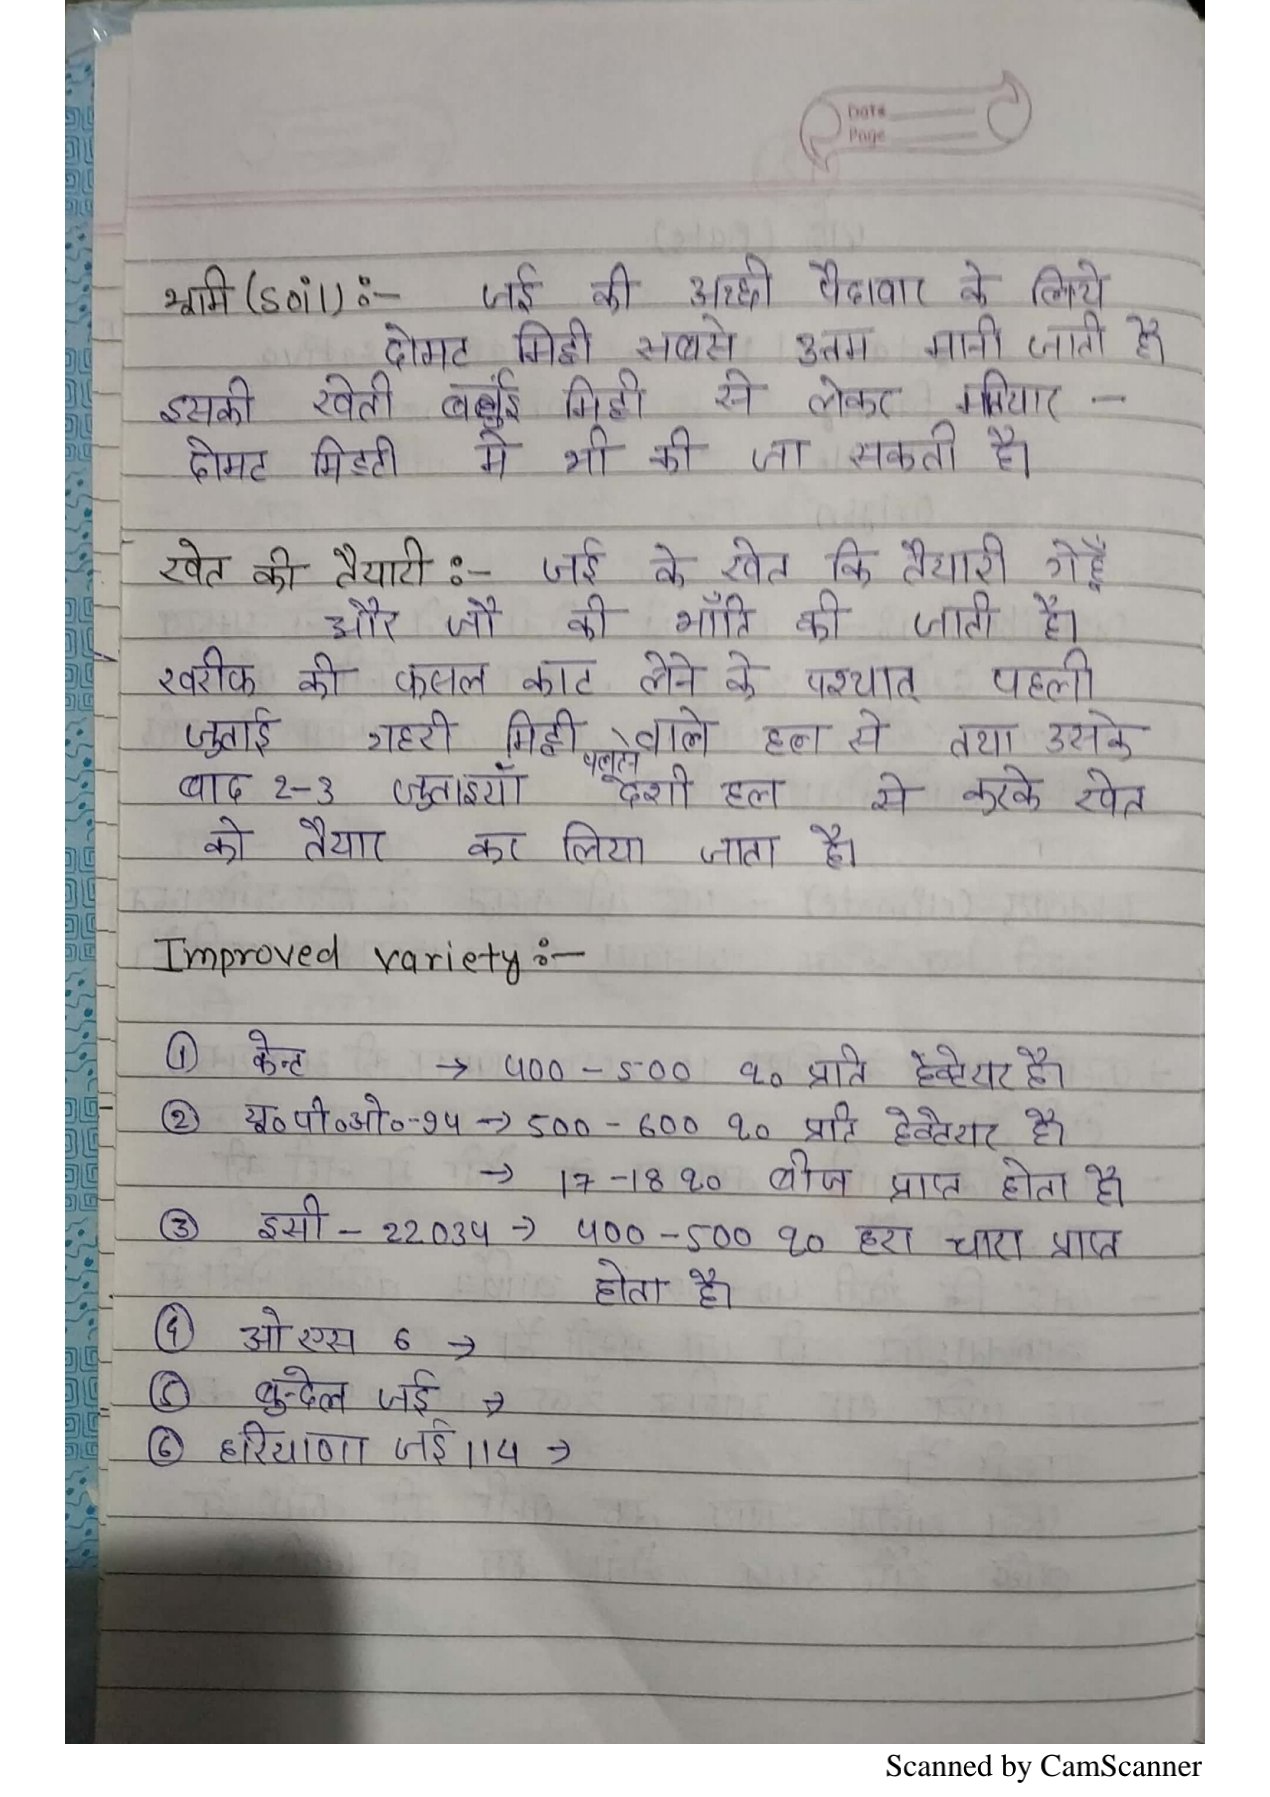 Date
Page
भूमि (Soil) :- जई की अच्छी पैदावार के लिये
दोमट मिट्टी सबसे उत्तम मानी जाती है।
इसकी खेती बलुई मिट्टी से लेकर मटियार -
दोमट मिडटी मे भी की जा सकती है।
खेत की तैयारी :- जई के खेत कि तैयारी गेहूँ
और जौ की भाँति की जाती है।
खरीफ की फसल काट लेने के पश्चात् पहली
जुताई गहरी मिट्टी पलटने वाले हल से तथा उसके
बाद 2-3 जुताइयाँ देशी हल से करके खेत
को तैयार कर लिया जाता है।
Improved variety :-
① केन्ट → 400 - 500 कु० प्रति हेक्टेयर है।
② यू०पी०ओ०-94 → 500 - 600 कु० प्रति हेक्टेयर है।
→ 17 - 18 कु० बीज प्राप्त होता है।
③ इसी - 22034 → 400 - 500 कु० हरा चारा प्राप्त
होता है।
④ ओ एस 6 →
⑤ बुन्देल जई →
⑥ हरियाणा जई 114 →
Scanned by CamScanner